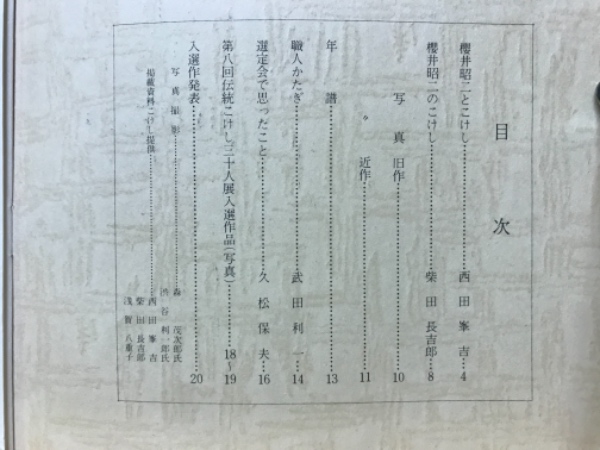 目次
櫻井昭二とこけし……西田峯吉…4
櫻井昭二のこけし……柴田長吉郎…8
写真旧作……10
近作……11
年譜……13
職人かたぎ……武田利一…14
選定会で思ったこと……久松保夫…16
第八回伝統こけし三十人展入選作品(写真)……18〜19
入選作発表……20
写真撮影……森茂次郎氏
渋谷利一郎氏
掲載資料こけし提供……西田峯吉
柴田長吉郎
浅賀八重子